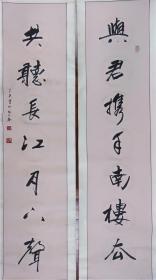 與君攜手南樓去
共聽長江月下聲